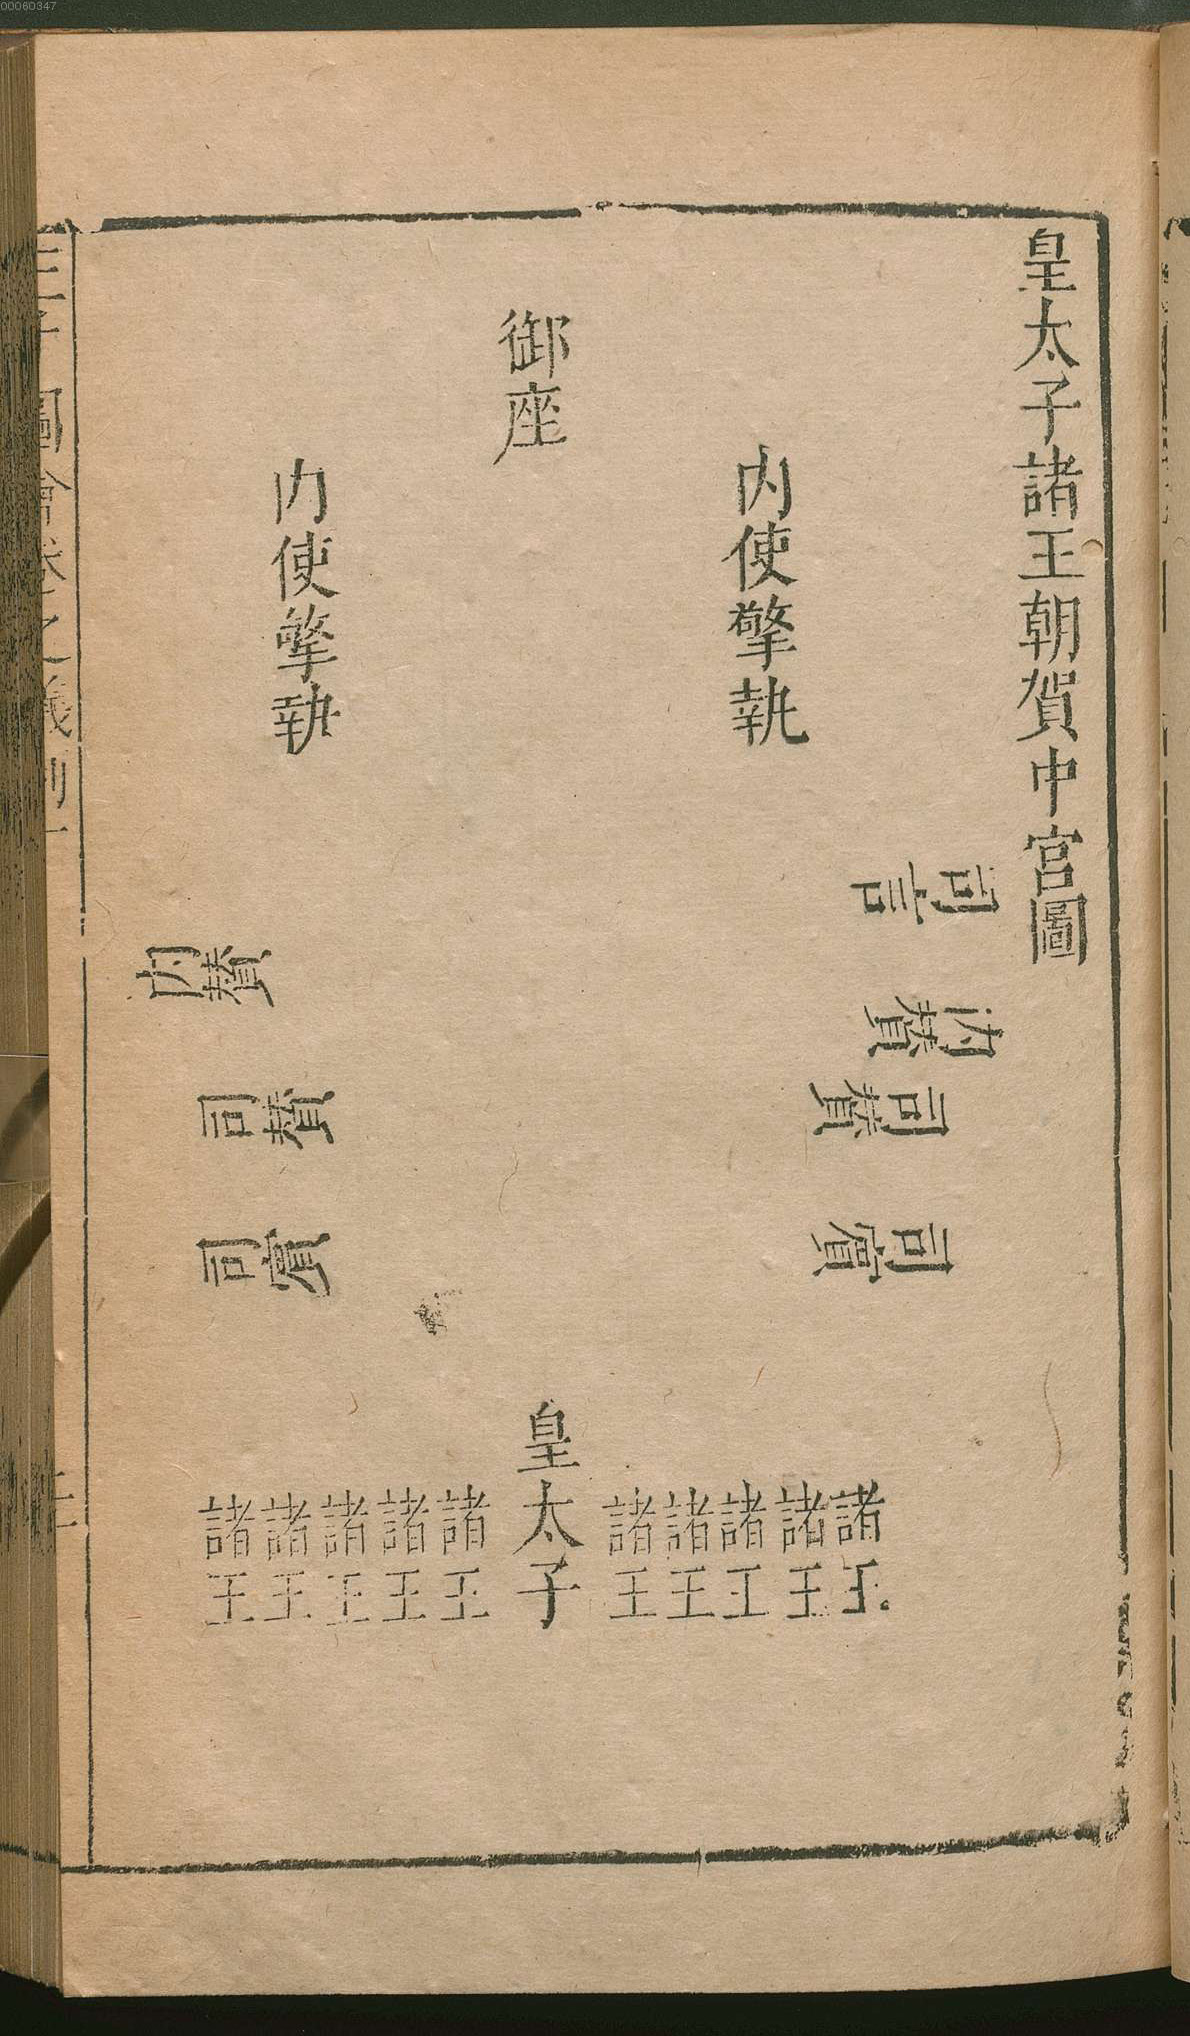 皇太子諸王朝賀中宮圖
御座
内使擎執
内使擎執
司言
内贊
司贊
司賔
内贊
司贊
司賔
皇太子
諸王
諸王
諸王
諸王
諸王
諸王
諸王
諸王
諸王
諸王
圖會
00060347